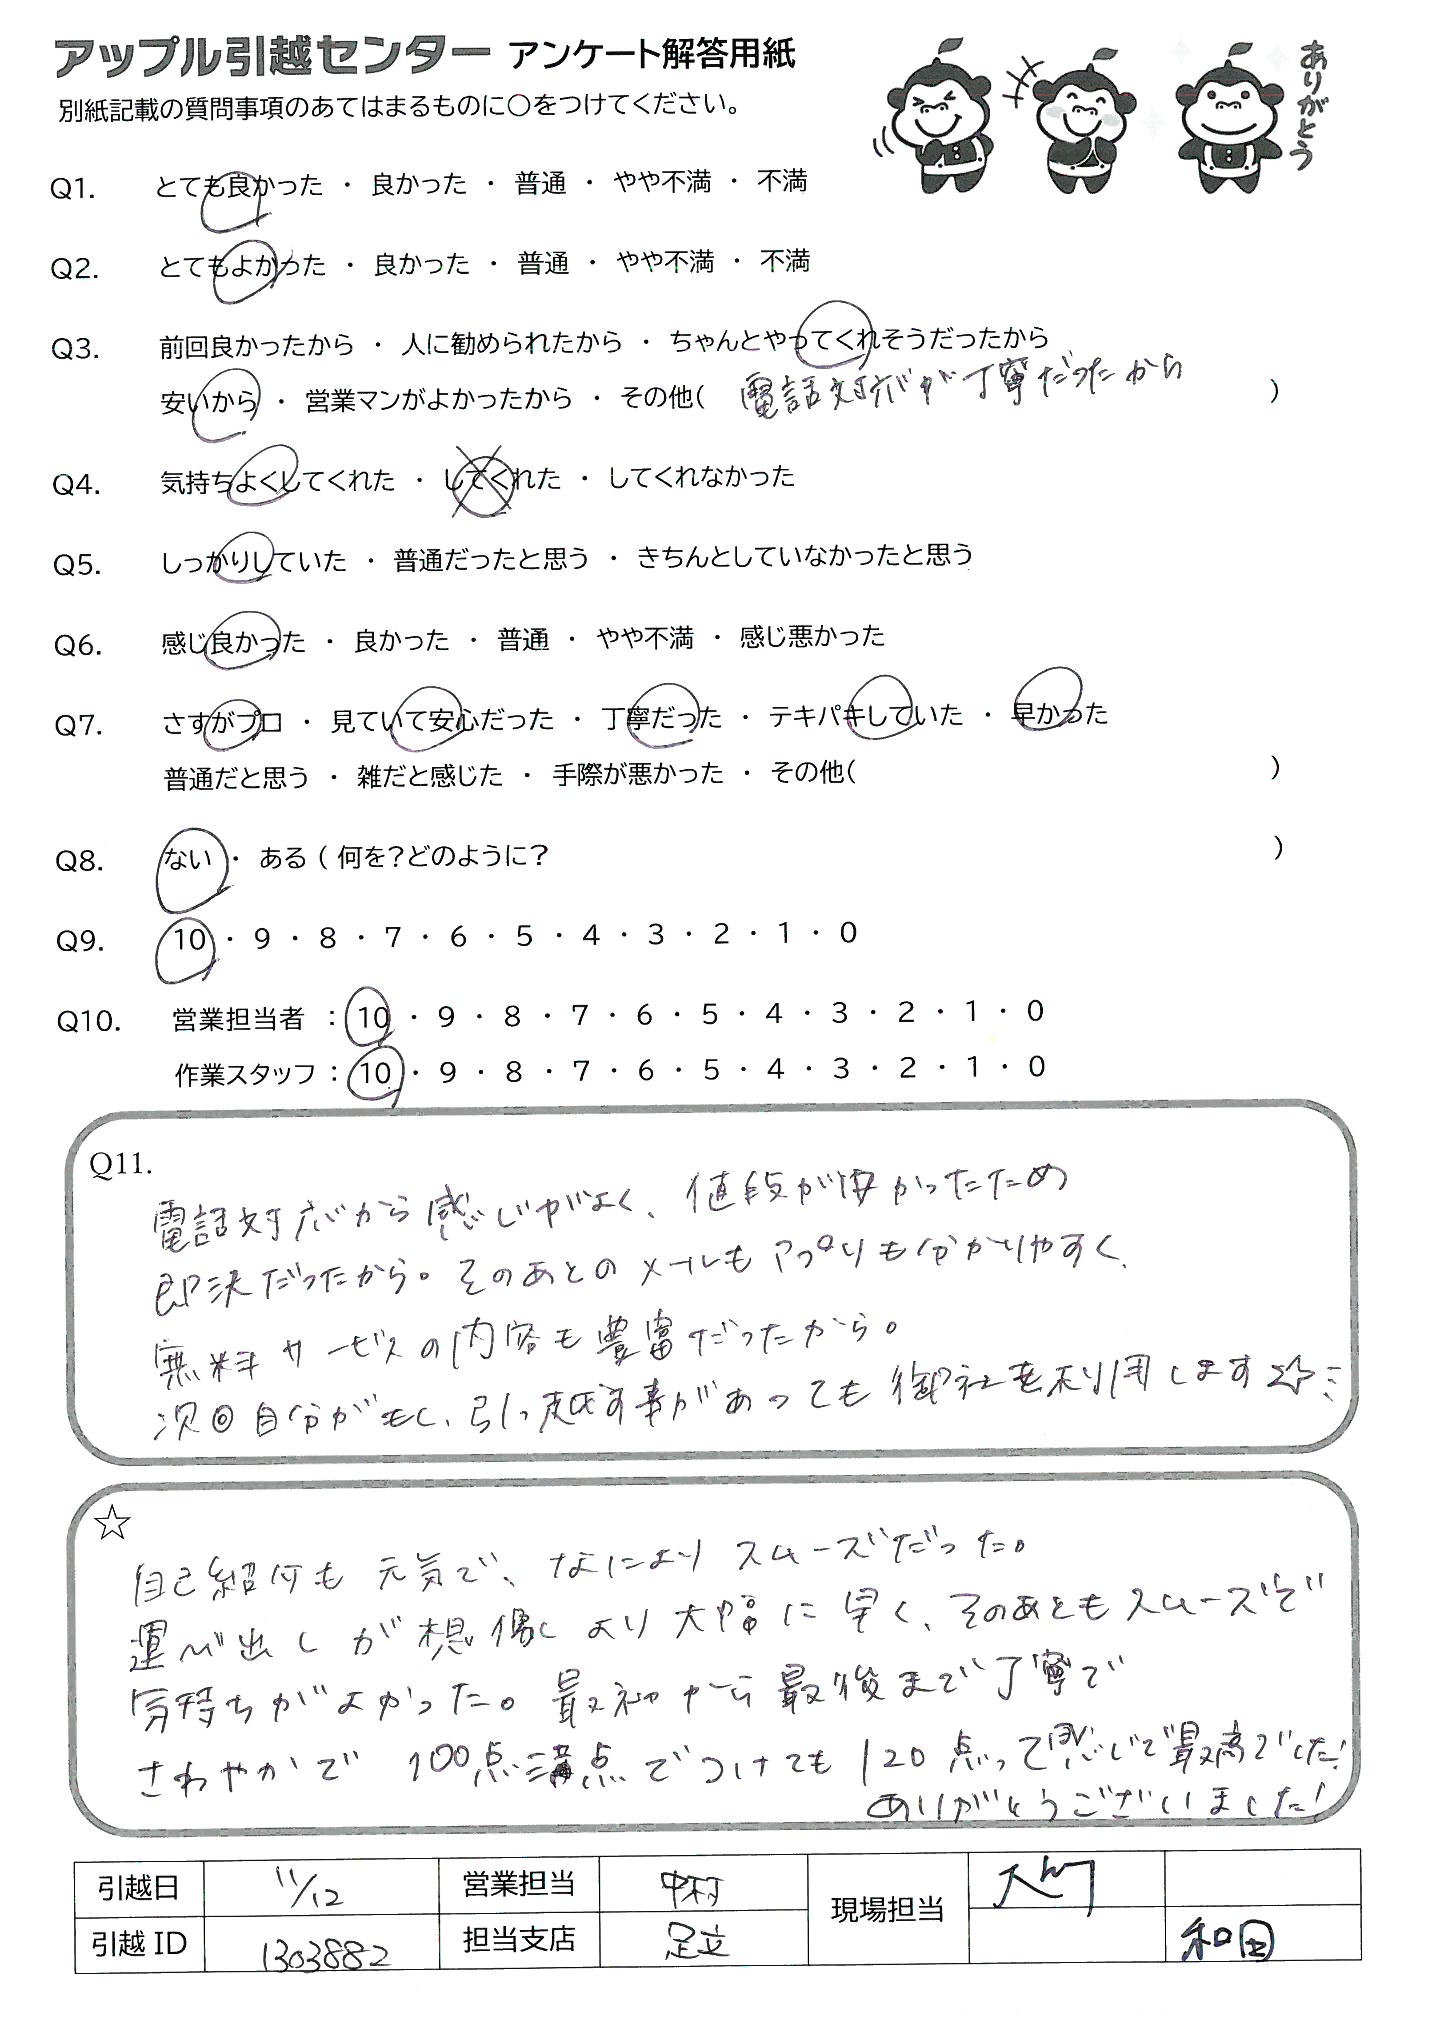 アップル引越センター アンケート解答用紙
ありがとう
別紙記載の質問事項のあてはまるものに〇をつけてください。
Q1. とても良かった ・ 良かった ・ 普通 ・ やや不満 ・ 不満
Q2. とてもよかった ・ 良かった ・ 普通 ・ やや不満 ・ 不満
Q3. 前回良かったから ・ 人に勧められたから ・ ちゃんとやってくれそうだったから
安いから ・ 営業マンがよかったから ・ その他( 電話対応が丁寧だったから )
Q4. 気持ちよくしてくれた ・ してくれた ・ してくれなかった
Q5. しっかりしていた ・ 普通だったと思う ・ きちんとしていなかったと思う
Q6. 感じ良かった ・ 良かった ・ 普通 ・ やや不満 ・ 感じ悪かった
Q7. さすがプロ ・ 見ていて安心だった ・ 丁寧だった ・ テキパキしていた ・ 早かった
普通だと思う ・ 雑だと感じた ・ 手際が悪かった ・ その他( )
Q8. ない ・ ある ( 何を?どのように? )
Q9. 10 ・ 9 ・ 8 ・ 7 ・ 6 ・ 5 ・ 4 ・ 3 ・ 2 ・ 1 ・ 0
Q10. 営業担当者 : 10 ・ 9 ・ 8 ・ 7 ・ 6 ・ 5 ・ 4 ・ 3 ・ 2 ・ 1 ・ 0
作業スタッフ : 10 ・ 9 ・ 8 ・ 7 ・ 6 ・ 5 ・ 4 ・ 3 ・ 2 ・ 1 ・ 0
Q11.
電話対応から感じがよく、値段が安かったため
即決だったから。そのあとのメールもアプリも分かりやすく、
無料サービスの内容も豊富だったから。
次回自分がもし、引っ越す事があっても御社を利用します☆ミ
☆
自己紹介も元気で、なによりスムーズだった。
運び出しが想像より大幅に早く、そのあともスムーズで
気持ちがよかった。最初から最後まで丁寧で
さわやかで 100点満点でつけても 120点って感じで最高でした!
ありがとうございました!
引越日 11/12 営業担当 中村 現場担当 入門
引越ID 1303882 担当支店 足立 和田